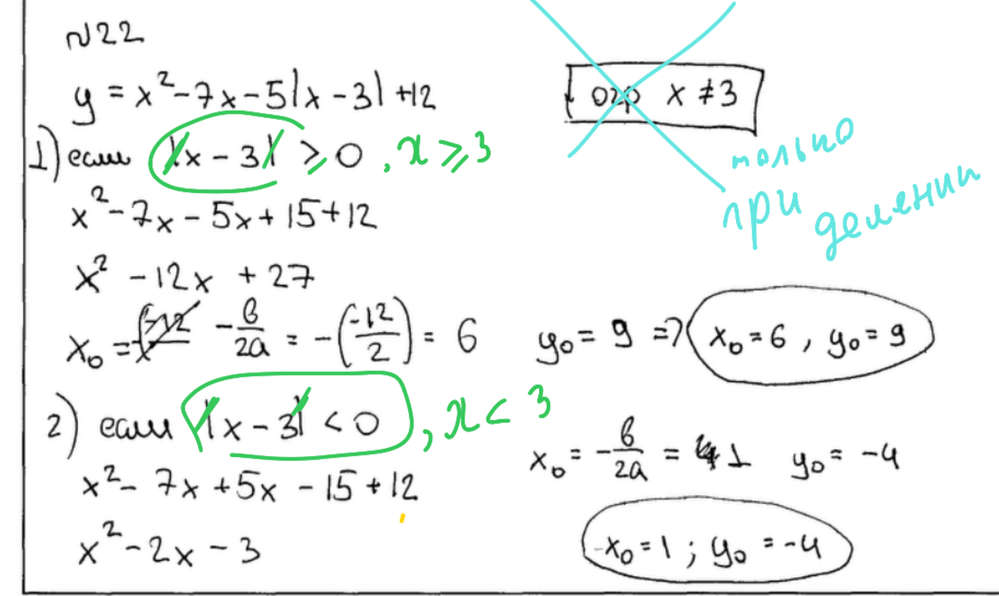 №22
y = x² - 7x - 5|x - 3| + 12
огр x ≠ 3
только
при делении
1) если |x - 3| ≥ 0, x ≥ 3
x² - 7x - 5x + 15 + 12
x² - 12x + 27
x₀ = -b/2a = -(-12/2) = 6 y₀ = 9 => x₀ = 6, y₀ = 9
2) если |x - 3| < 0, x < 3
x² - 7x + 5x - 15 + 12
x₀ = -b/2a = 1 y₀ = -4
x² - 2x - 3
x₀ = 1; y₀ = -4